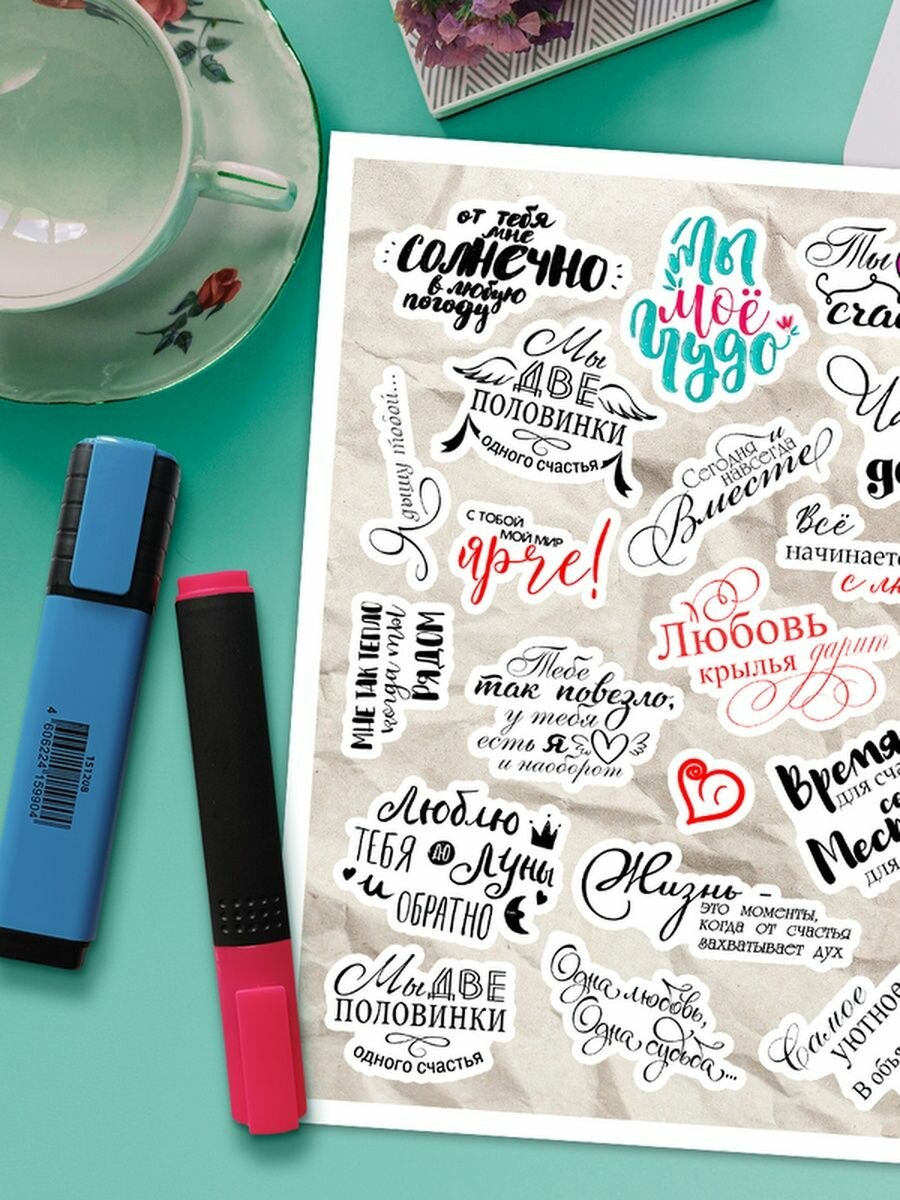 от тебя
мне
солнечно
в любую
погоду
Ты
моё
чудо
Ты
Мы
ДВЕ
ПОЛОВИНКИ
одного счастья
Я дышу тобой...
Сегодня и
навсегда
Вместе
С ТОБОЙ
МОЙ МИР
ярче!
Всё
начинаетс
МНЕ ТАК ТЕПЛО
когда ты
РЯДОМ
Любовь
крылья дарит
Тебе
так повезло,
у тебя
есть Я
и наоборот
Время
для сча
Мест
для
Люблю
ТЕБЯ ДО Луны
и
ОБРАТНО
Жизнь -
это моменты,
когда от счастья
захватывает дух
Мы ДВЕ
ПОЛОВИНКИ
одного счастья
Одна любовь,
Одна судьба...
Самое
уютное
В объя
151208
4 606224 159904